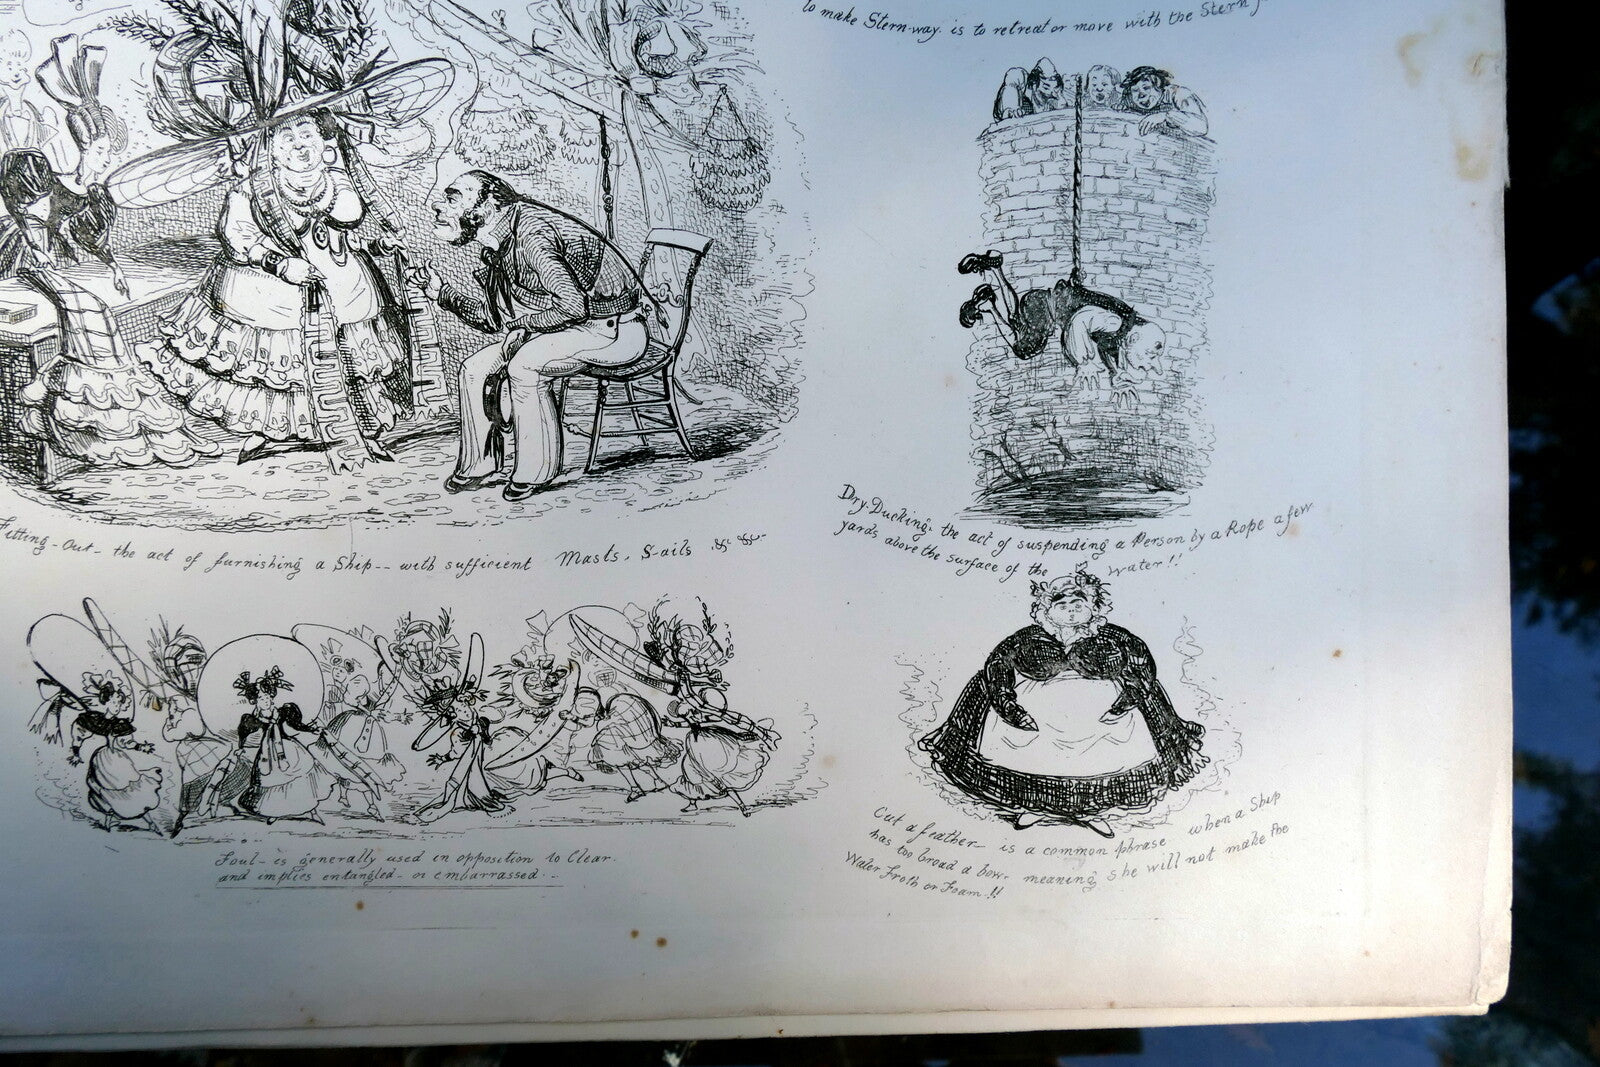 to make Stern-way. is to retreat or move with the Stern
Fitting-Out- the act of furnishing a Ship-- with sufficient Masts, Sails &c &c-
Dry-Ducking- the act of suspending a Person by a Rope a few
yards above the surface of the water!!
Foul- is generally used in opposition to Clear.
and implies entangled- or embarrassed--
Cut a feather- is a common phrase when a Ship
has too broad a bow, meaning she will not make the
Water Froth or Foam!!